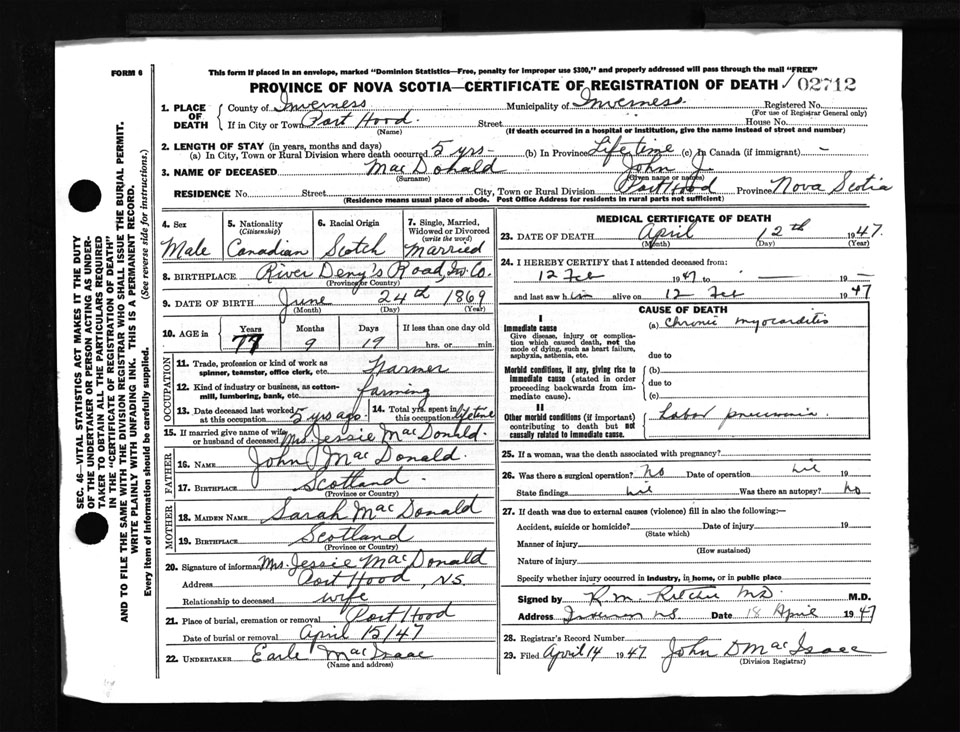 FORM 6
This form if placed in an envelope, marked "Dominion Statistics—Free, penalty for improper use $300," and properly addressed will pass through the mail "FREE"
PROVINCE OF NOVA SCOTIA—CERTIFICATE OF REGISTRATION OF DEATH 02712
1. PLACE OF DEATH
County of Inverness Municipality of Inverness Registered No.
(For use of Registrar General only)
If in City or Town Port Hood. Street House No.
(Name) (If death occurred in a hospital or institution, give the name instead of street and number)
2. LENGTH OF STAY (in years, months and days)
(a) In City, Town or Rural Division where death occurred 5 yrs- (b) In Province Lifetime (c) In Canada (if immigrant) -
3. NAME OF DECEASED MacDonald John J.
(Surname) (Given name or names)
RESIDENCE No. Street City, Town or Rural Division Port Hood Province Nova Scotia
(Residence means usual place of abode. Post Office Address for residents in rural parts not sufficient)
4. Sex
Male
5. Nationality
(Citizenship)
Canadian
6. Racial Origin
Scotch
7. Single, Married, Widowed or Divorced
(write the word)
Married
8. BIRTHPLACE River Deny's Road, Inv. Co.
(Province or Country)
9. DATE OF BIRTH June 24th 1869
(Month) (Day) (Year)
10. AGE in Years Months Days If less than one day old
77 9 19 hrs. or min.
OCCUPATION
11. Trade, profession or kind of work as
spinner, teamster, office clerk, etc. Farmer
12. Kind of industry or business, as cotton-
mill, lumbering, bank, etc. farming
13. Date deceased last worked
at this occupation 5 yrs ago.
14. Total yrs. spent in
this occupation lifetime
15. If married give name of wife
or husband of deceased Mrs. Jessie MacDonald.
FATHER
16. NAME John MacDonald.
17. BIRTHPLACE Scotland
(Province or Country)
MOTHER
18. MAIDEN NAME Sarah MacDonald
19. BIRTHPLACE Scotland
(Province or Country)
20. Signature of informant Mrs. Jessie MacDonald
Address Port Hood, N.S.
Relationship to deceased wife
21. Place of burial, cremation or removal Port Hood
Date of burial or removal April 15/47
22. UNDERTAKER Earle MacIsaac
(Name and address)
MEDICAL CERTIFICATE OF DEATH
23. DATE OF DEATH April 12th 1947.
(Month) (Day) (Year)
24. I HEREBY CERTIFY that I attended deceased from:
12 Feb 1947 to — 19 —
and last saw him alive on 12 Feb 1947
CAUSE OF DEATH
I
Immediate cause
Give disease, injury or complica-
tion which caused death, not the
mode of dying, such as heart failure,
asphyxia, asthenia, etc.
(a) Chronic myocarditis
due to
Morbid conditions, if any, giving rise to
immediate cause (stated in order
proceeding backwards from im-
mediate cause).
(b)
due to
(c)
II
Other morbid conditions (if important)
contributing to death but not
causally related to immediate cause.
Lobar pneumonia.
25. If a woman, was the death associated with pregnancy?
26. Was there a surgical operation? No Date of operation nil 19
State findings nil Was there an autopsy? No
27. If death was due to external causes (violence) fill in also the following:—
Accident, suicide or homicide? Date of injury 19
(State which)
Manner of injury
(How sustained)
Nature of injury
Specify whether injury occurred in industry, in home, or in public place
Signed by R. M. M.D. M.D.
Address N.S. Date 18 April 1947
28. Registrar's Record Number
29. Filed April 14 1947 John D MacIsaac
(Division Registrar)
SEC. 46—VITAL STATISTICS ACT MAKES IT THE DUTY
OF THE UNDERTAKER OR PERSON ACTING AS UNDER-
TAKER TO OBTAIN ALL THE PARTICULARS REQUIRED
IN THE "CERTIFICATE OF REGISTRATION OF DEATH"
AND TO FILE THE SAME WITH THE DIVISION REGISTRAR WHO SHALL ISSUE THE BURIAL PERMIT.
WRITE PLAINLY WITH UNFADING INK. THIS IS A PERMANENT RECORD.
Every item of Information should be carefully supplied. (See reverse side for instructions.)